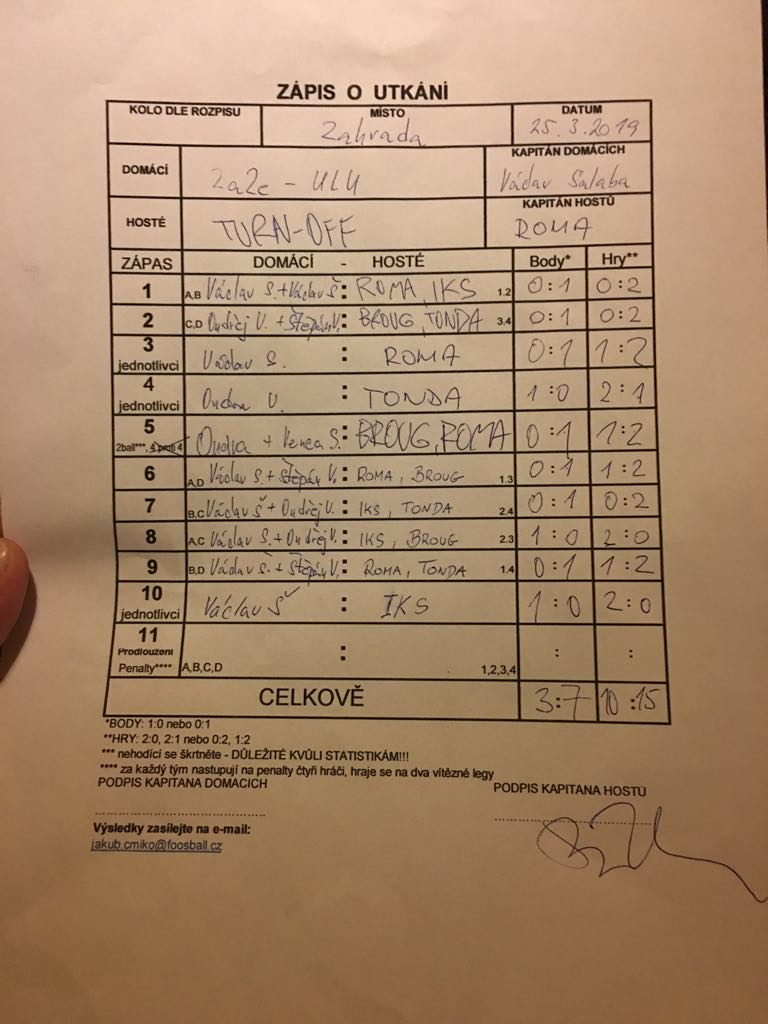 ZÁPIS O UTKÁNÍ
KOLO DLE ROZPISU MÍSTO DATUM
Zahrada 25.3.2019
DOMÁCÍ ZaZe - ULU KAPITÁN DOMÁCÍCH
Václav Salaba
HOSTÉ TURN-OFF KAPITÁN HOSTŮ
ROMA
ZÁPAS DOMÁCÍ - HOSTÉ Body* Hry**
1 A,B Václav S. + Václav Š : ROMA, IKS 1.2 0:1 0:2
2 C,D Ondřej V. + Štěpán V. : BROUG, TONDA 3.4 0:1 0:2
3 jednotlivci Václav S. : ROMA 0:1 1:2
4 jednotlivci Ondra V. : TONDA 1:0 2:1
5 2ball***, 4 proti 4 Ondra + Venca S. : BROUG, ROMA 0:1 1:2
6 A,D Václav S. + Štěpán V. : ROMA, BROUG 1.3 0:1 1:2
7 B,C Václav Š + Ondřej V. : IKS, TONDA 2.4 0:1 0:2
8 A,C Václav S. + Ondřej V. : IKS, BROUG 2.3 1:0 2:0
9 B,D Václav Š. + Štěpán V. : ROMA, TONDA 1.4 0:1 1:2
10 jednotlivci Václav Š : IKS 1:0 2:0
11 Prodloužení : : :
Penalty**** A,B,C,D 1,2,3,4
CELKOVĚ 3:7 10:15
*BODY: 1:0 nebo 0:1
**HRY: 2:0, 2:1 nebo 0:2, 1:2
*** nehodící se škrtněte - DŮLEŽITÉ KVŮLI STATISTIKÁM!!!
**** za každý tým nastupují na penalty čtyři hráči, hraje se na dva vítězné legy
PODPIS KAPITANA DOMACICH PODPIS KAPITANA HOSTU
Výsledky zasílejte na e-mail:
jakub.cmiko@foosball.cz